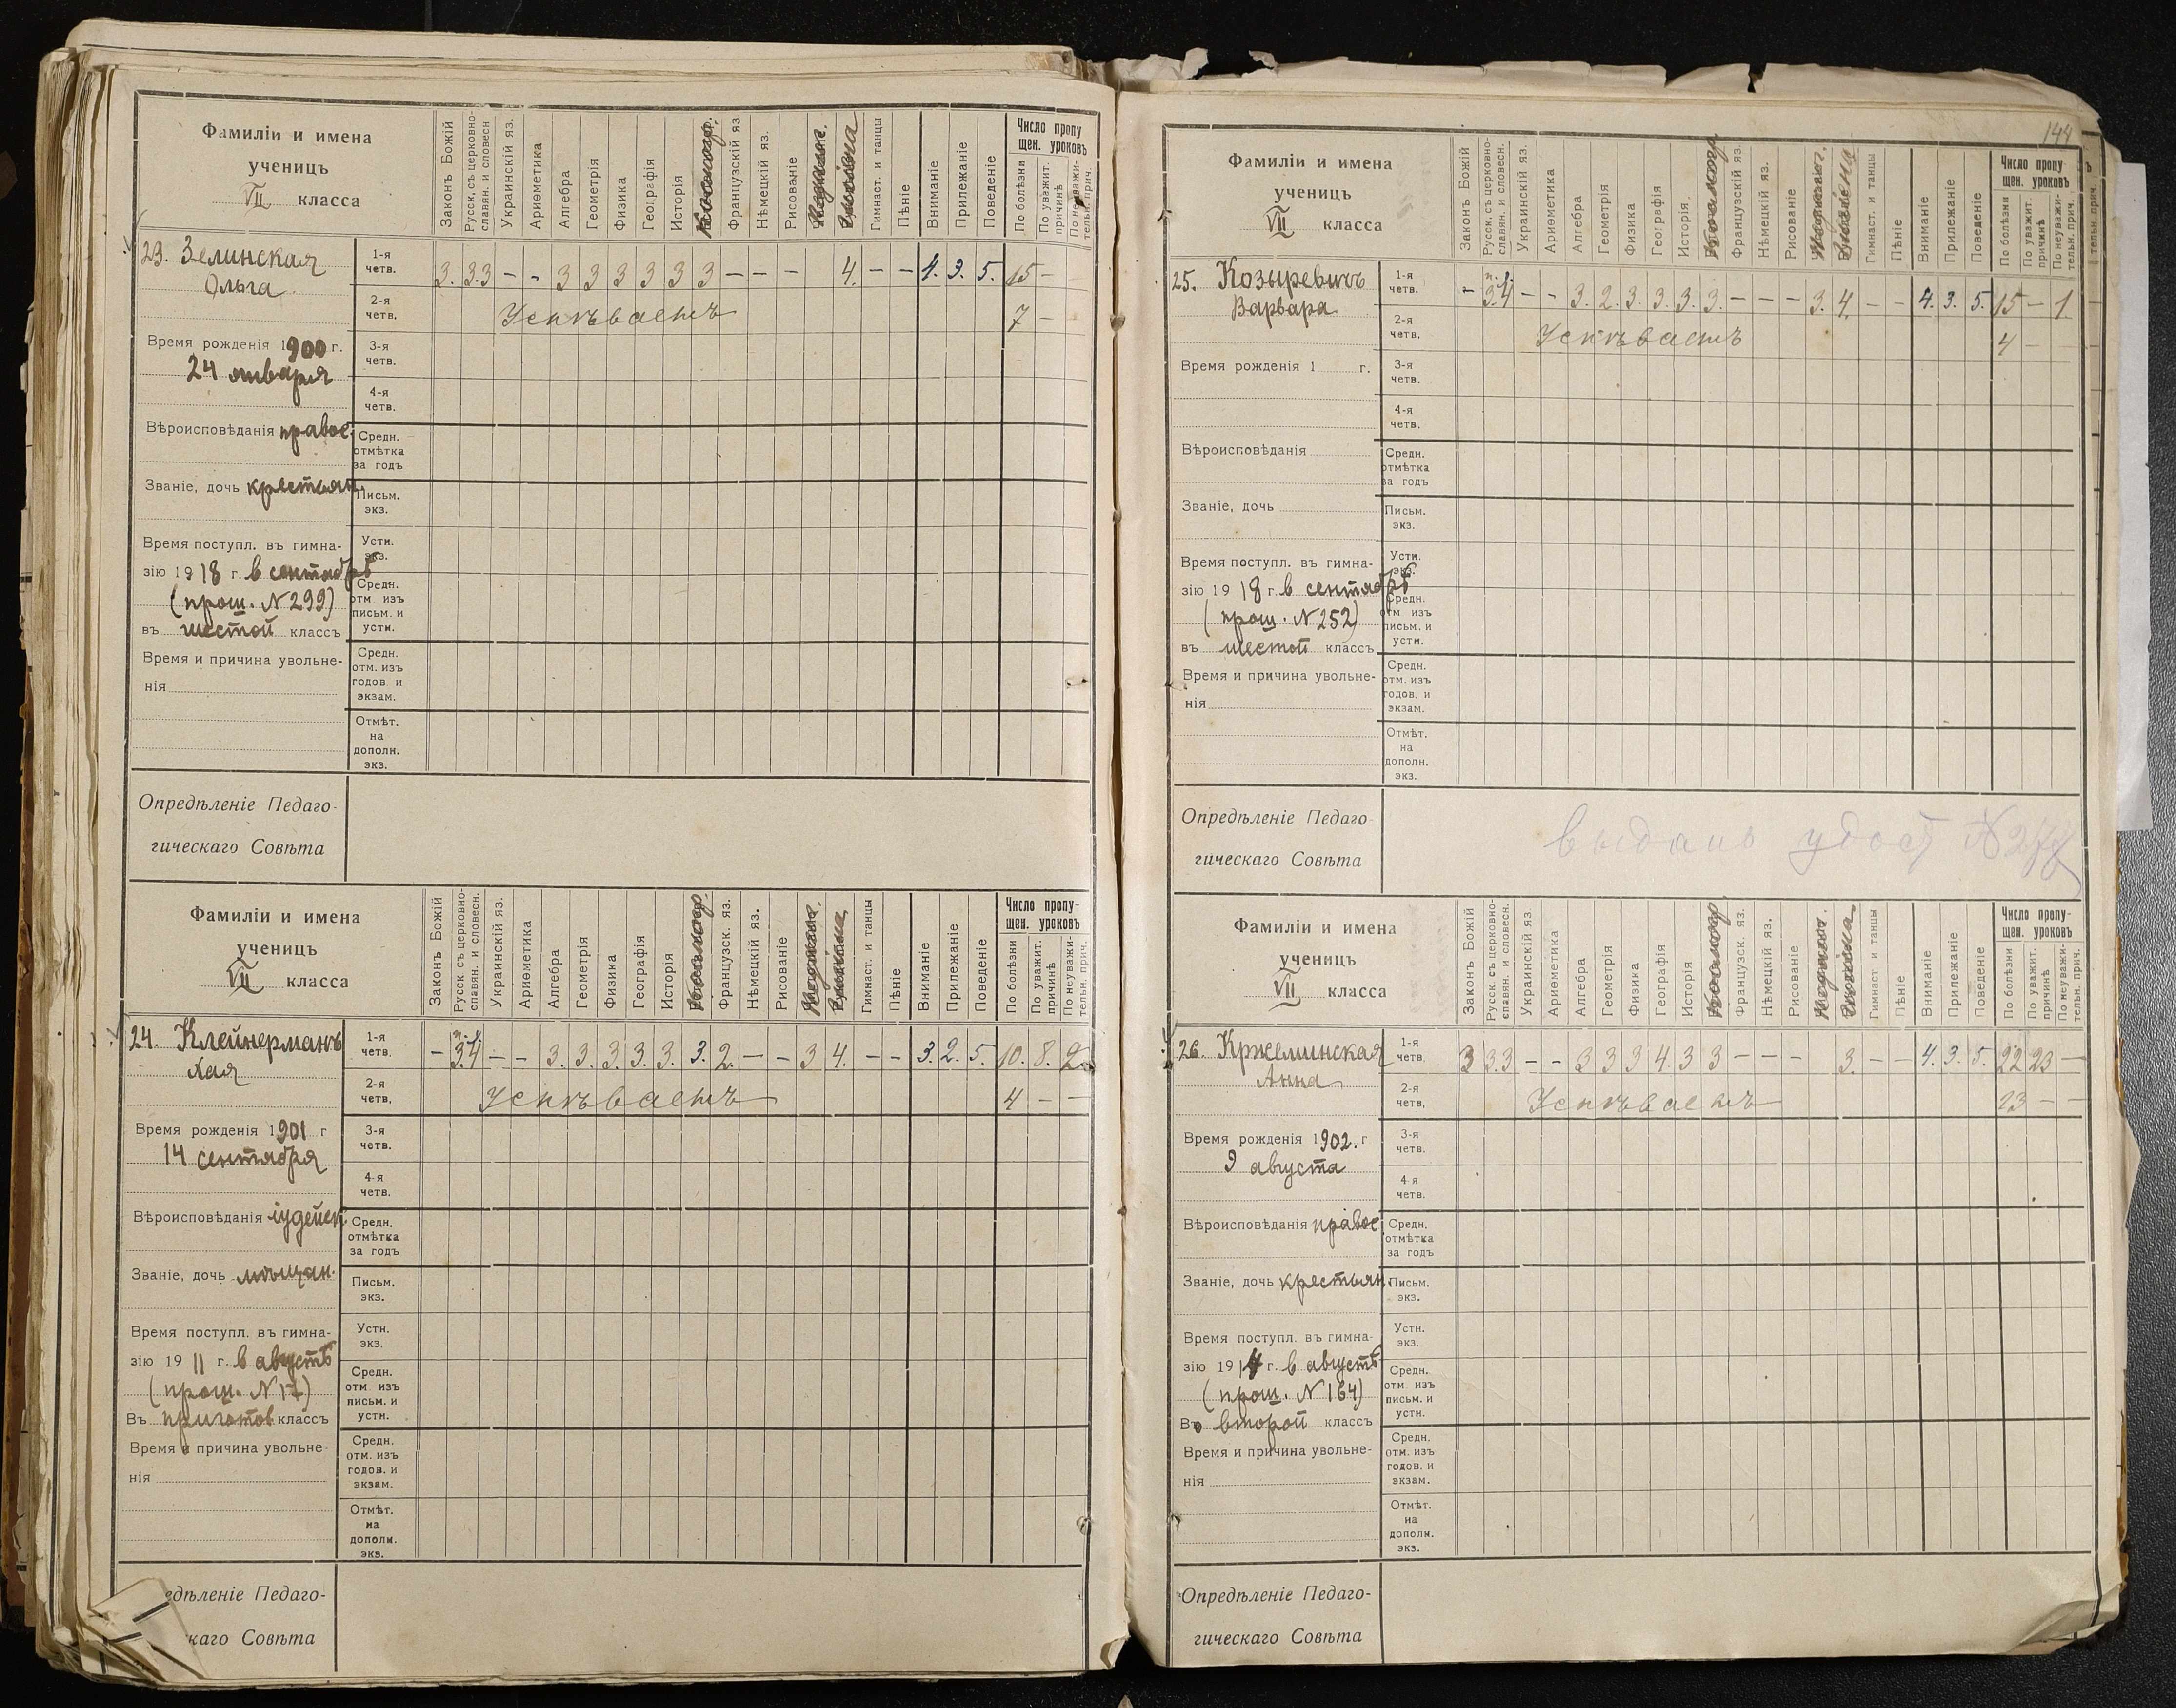 Фамиліи и имена
ученицъ
VII класса
Законъ Божій
Русск. съ церковно-
славян. и словесн
Украинскій яз.
Ариѳметика
Алгебра
Геометрія
Физика
Географія
Исторія
Космогр.
Французскій яз
Нѣмецкій яз.
Рисованіе
Педагог.
Гигіена
Гимнаст. и танцы
Пѣніе
Вниманіе
Прилежаніе
Поведеніе
Число пропу
щен. уроковъ
По болѣзни
По уважит.
причинѣ
По неуважи-
тельн. прич.
23. Зелинская
Ольга
1-я
четв.
3. 3.3 – – 3 3 3 3 3 3 – – – 4. – – 4. 3. 5. 15 –
2-я
четв.
Успѣваетъ 7 –
Время рожденія 1900 г.
24 января
3-я
четв.
4-я
четв.
Вѣроисповѣданія правос.
Средн.
отмѣтка
за годъ
Званіе, дочь крестьян.
Письм.
экз.
Время поступл. въ гимна-
зію 1918 г. в сентябрѣ
(прош. N 299)
въ шестой классъ
Устн.
экз.
Средн.
отм изъ
письм. и
устн.
Время и причина увольне-
нія
Средн.
отм. изъ
годов и
экзам.
Отмѣт.
на
дополн.
экз.
Опредѣленіе Педаго-
гическаго Совѣта
Фамиліи и имена
ученицъ
VII класса
Законъ Божій
Русск съ церковно-
славян. и словесн.
Украинскій яз.
Ариѳметика
Алгебра
Геометрія
Физика
Географія
Исторія
Космогр.
Французск. яз.
Нѣмецкій яз.
Рисованіе
Педагог.
Гигіена
Гимнаст. и танцы
Пѣніе
Вниманіе
Прилежаніе
Поведеніе
Число пропу-
щен. уроковъ
По болѣзни
По уважит.
причинѣ
По неуважи-
тельн. прич.
24. Клейнерманъ
Хая
1-я
четв.
– 3.4 – – 3. 3. 3. 3. 3. 3. 2. – – 3 4. – – 3. 2. 5. 10. 8. 2
2-я
четв.
Успѣваетъ 4 – –
Время рожденія 1901 г
14 сентября
3-я
четв.
4-я
четв.
Вѣроисповѣданія іудейск.
Средн.
отмѣтка
за годъ
Званіе, дочь мѣщан.
Письм.
экз.
Время поступл. въ гимна-
зію 1911 г. в августѣ
(прош. N 17)
Въ приготов классъ
Устн.
экз.
Средн.
отм изъ
письм. и
устн.
Время и причина увольне
нія
Средн.
отм. изъ
годов. и
экзам.
Отмѣт.
на
дополн.
экз.
едѣленіе Педаго-
каго Совѣта
144
Фамиліи и имена
ученицъ
VII класса
Законъ Божій
Русск. съ церковно-
славян. и словесн.
Украинскій яз.
Ариѳметика
Алгебра
Геометрія
Физика
Географія
Исторія.
Космогр.
Французскій яз.
Нѣмецкій яз.
Рисованіе
Педагог.
Гигіена
Гимнаст. и танцы
Пѣніе
Вниманіе
Прилежаніе
Поведеніе
Число пропу-
щен. уроковъ
По болѣзни
По уважит
причинѣ
По неуважи-
тельн. прич.
25. Козыревичъ
Варвара
1-я
четв.
– 3.4 – – 3. 2. 3. 3. 3. 3. – – – 3. 4. – – 4. 3. 5. 15 – 1
2-я
четв.
Успѣваетъ 4 –
Время рожденія 1 г.
3-я
четв.
4-я
четв.
Вѣроисповѣданія
Средн.
отмѣтка
за годъ
Званіе, дочь
Письм.
экз.
Время поступл. въ гимна-
зію 1918 г. в сентябрѣ
(прош. N 252)
въ шестой классъ
Устн.
экз.
Средн.
отм изъ
письм. и
устн.
Время и причина увольне-
нія
Средн.
отм. изъ
годов. и
экзам.
Отмѣт.
на
дополн.
экз.
Опредѣленіе Педаго-
гическаго Совѣта
выдано удост
Фамиліи и имена
ученицъ
VII класса
Законъ Божій
Русск. съ церковно-
славян. и словесн.
Украинскій яз
Ариѳметика
Алгебра
Геометрія
Физика
Географія
Исторія
Космогр.
Французск. яз.
Нѣмецкій яз.
Рисованіе
Педагог.
Гигіена
Гимнаст. и танцы
Пѣніе
Вниманіе
Прилежаніе
Поведеніе
Число пропу-
щен. уроковъ
По болѣзни
По уважит.
причинѣ
По неуважи-
тельн. прич.
26. Кржеминская
Анна
1-я
четв.
3 3.3 – – 3 3 3 4. 3 3 – – – 3. – – 4. 3. 5. 22 23 –
2-я
четв,
Успѣваетъ 23 – –
Время рожденія 1902. г
9 августа
3-я
четв.
4 я
четв.
Вѣроисповѣданія правос
Средн.
отмѣтка
за годъ
Званіе, дочь крестьян.
Письм.
экз.
Время поступл. въ гимна-
зію 1914 г. в августѣ
(прош. N 164)
Въ второй классъ
Устн.
экз.
Средн.
отм. изъ
письм. и
устн.
Время и причина увольне-
нія
Средн.
отм. изъ
годов. и
экзам.
Отмѣт.
на
дополн.
экз.
Опредѣленіе Педаго-
гическаго Совѣта